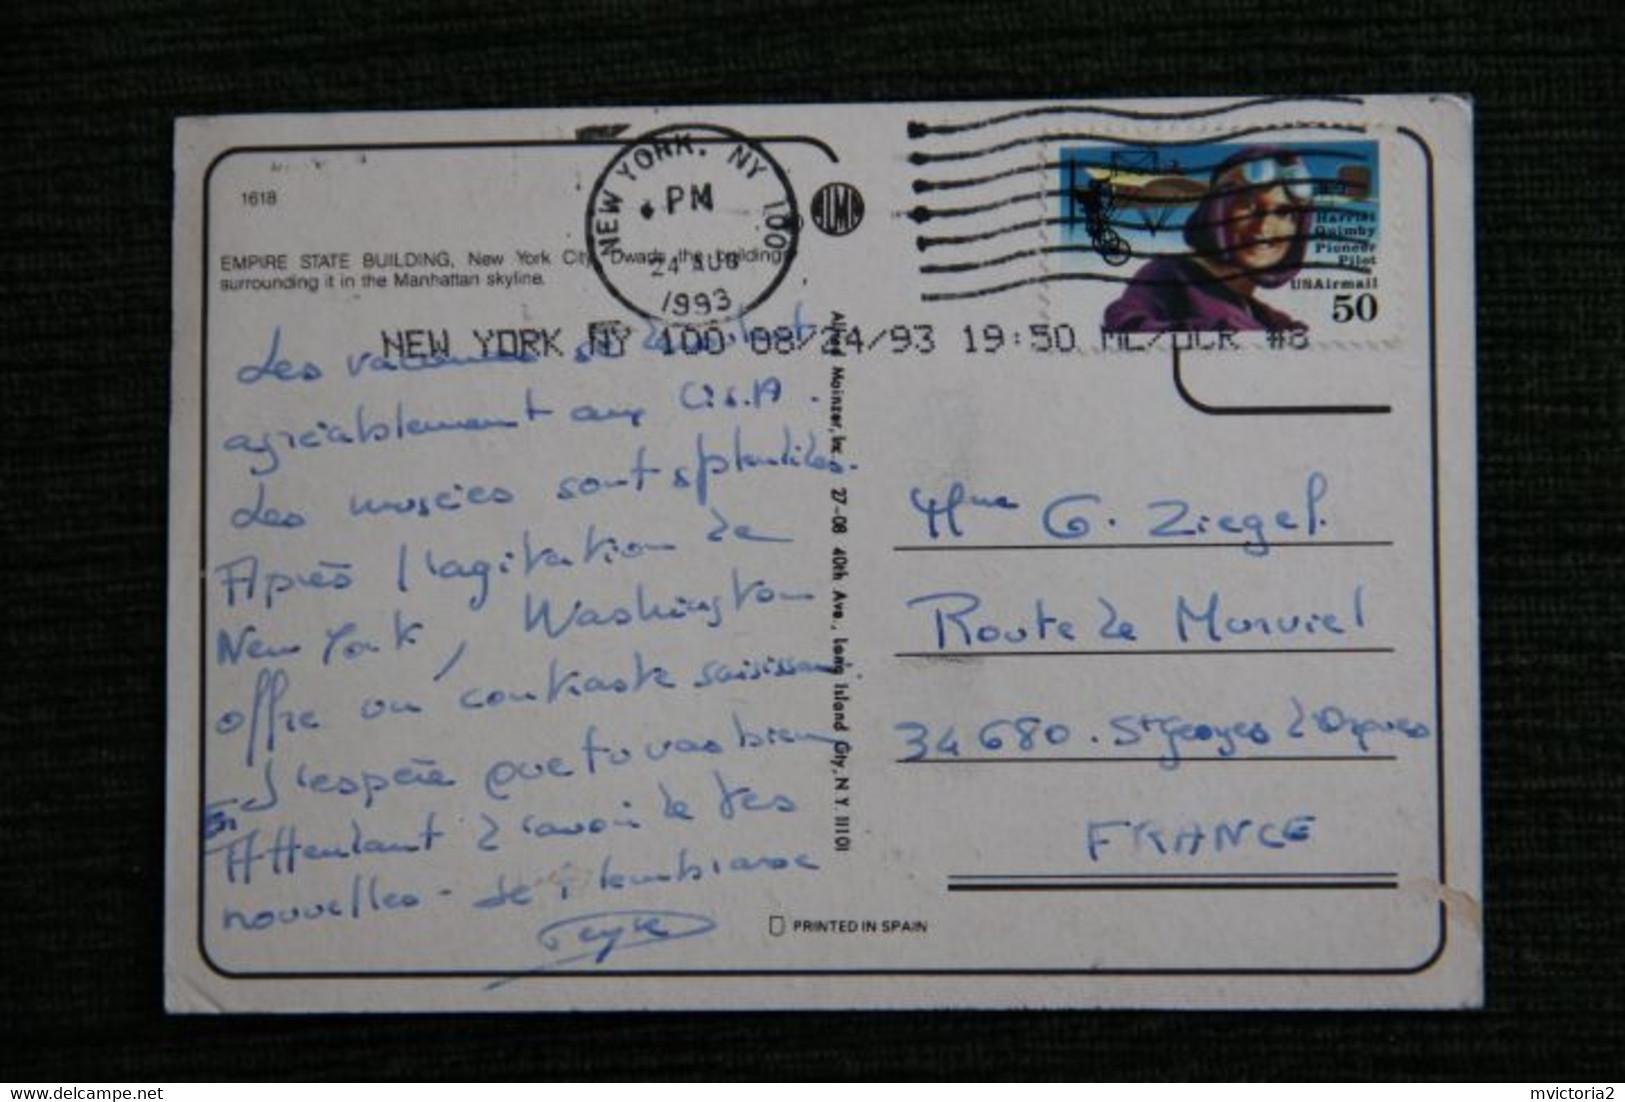 1618
EMPIRE STATE BUILDING, New York City. Dwarfs the buildings
surrounding it in the Manhattan skyline.
NEW YORK, NY 100
PM
24 AUG
1993
NEW YORK NY 100 08/24/93 19:50 MC/OCR #8
ALMA
Harriet
Quimby
Pioneer
Pilot
USAirmail
50
Les vacances se
agréablement aux U.S.A.
Les musées sont splendides.
Après l'agitation de
New York, Washington
offre un contraste saisissant
J'espère que tu vas bien
En
Attendant d'avoir de tes
nouvelles - je t'embrasse
Alfred Mainzer, Inc. 27-08 40th Ave., Long Island City, N.Y. 11101
Mme G. Ziegel.
Route de Murviel
34680. St Georges d'Orques
FRANCE
PRINTED IN SPAIN
mvictoria2